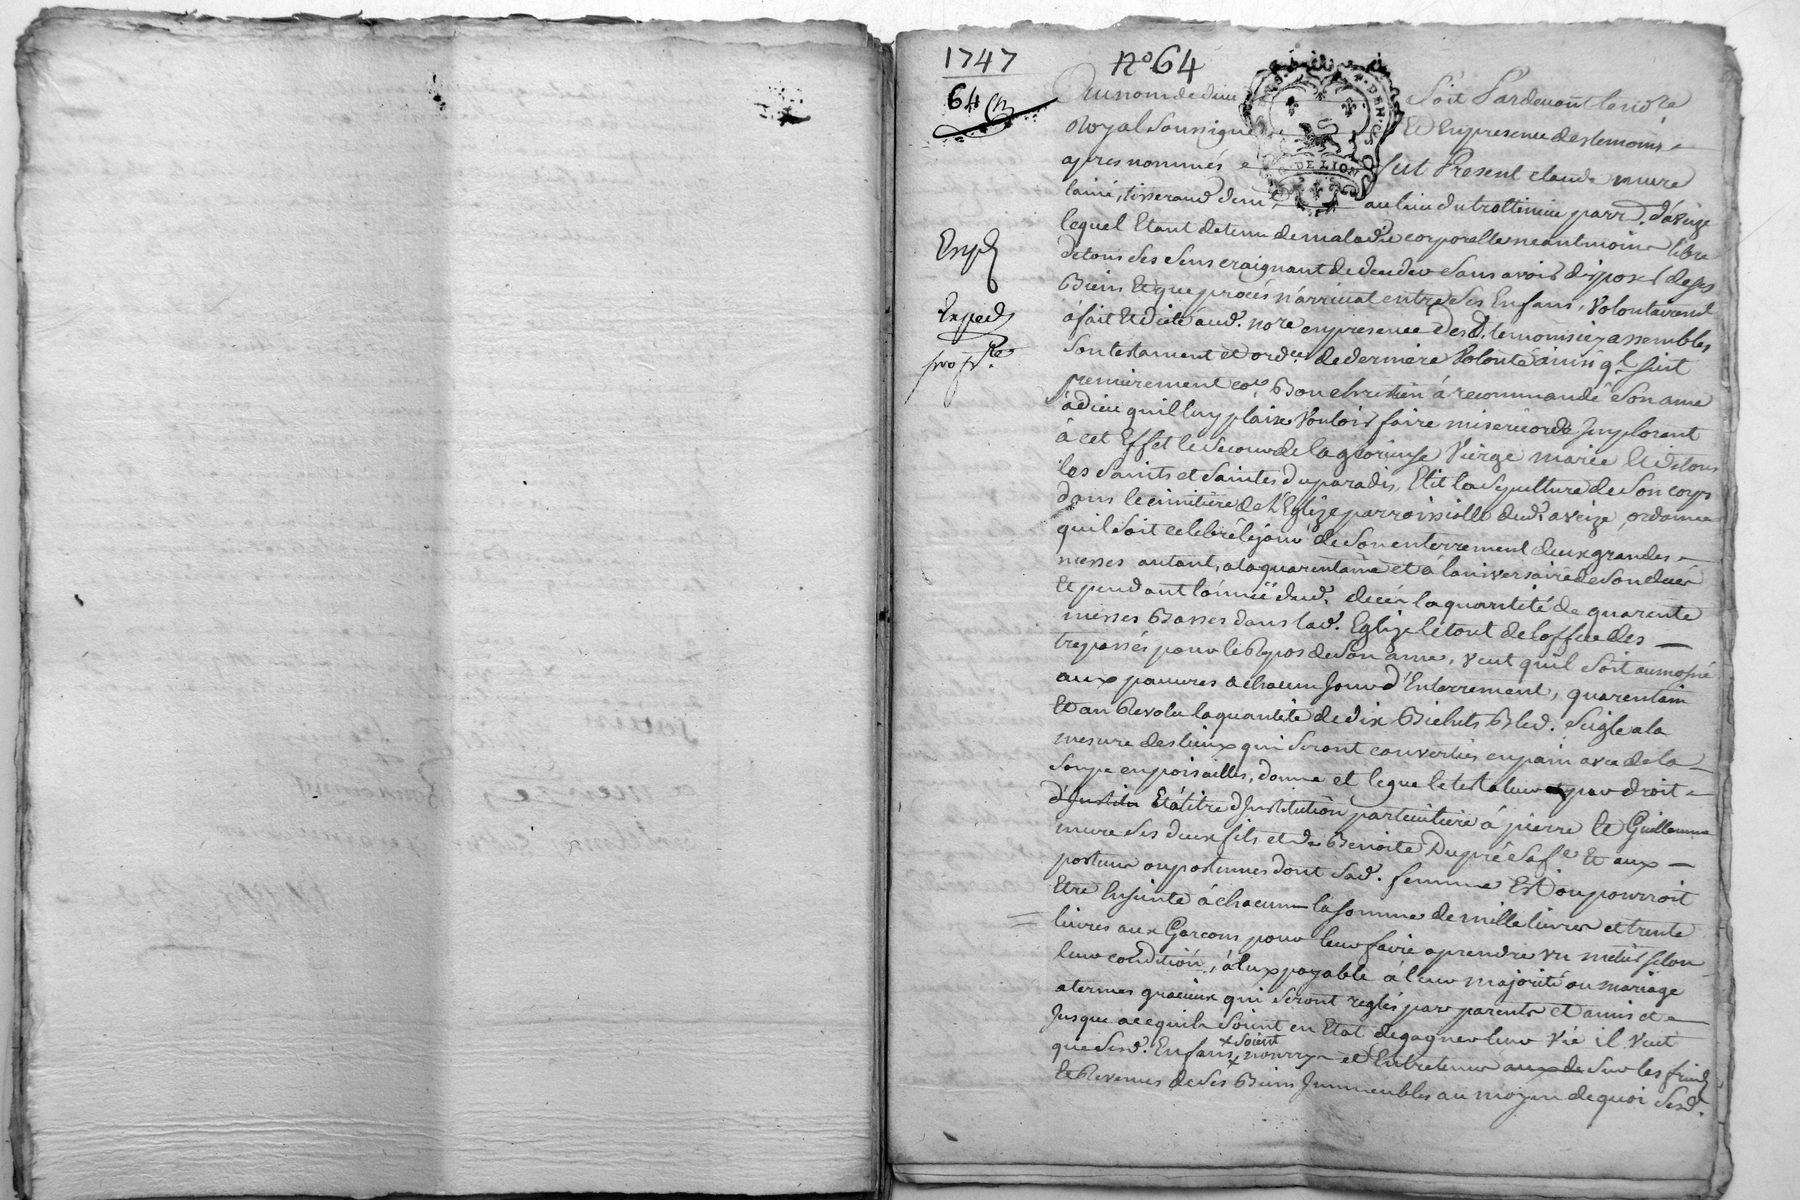 1747
n° 64
64
Au nom de dieu Soit Pardevant le no.re
Royal Soussigné Et En presence des temoins
apres nommés Fut Present claude mure
DE LION
lainé, tisserand dem.t au lieu du trottinier parr. d'aveize
lequel Etant detenu de maladie corporelle neantmoins libre
Exp.d
de tous ses sens craignant de deceder sans avoir disposé de ses
Biens Et que procés n'arrivat entre ses Enfans, volontairement
Exped.
à fait Et dicté aud. no.re en presence des d. temoins icy assemblés
son testament et ord.ce de derniere volonté ainsi q.l suit
premierement co.e Bon chretien à recommandé son ame
à dieu quil luy plaise vouloir faire misericorde Implorant
à cet Effet le secours de la glorieuse Vierge marie Et de tous
les saints et saintes du paradis, Elit la sepulture de son corps
dans le cimitiere de L'Eglize parroissialle dud. aveize, ordonne
quil soit celebré le jour de son enterrement deux grandes
messes autant, a la quarentaine et à laniversaire de son decés
Et pendant lannée dud. deces la quantité de quarente
messes Basses dans lad. Eglize le tout de loffice des
trepassés pour le Repos de son ame, veut quil soit aumosné
aux pauvres a chacun Jour d'Enterrement, quarentain
Et an Revolu la quantité de dix Bichets Bled. Seigle a la
mesure des lieux qui seront convertis en pain avec de la
soupe en poisailles, donne et legue le testateur par droit
d'Institu Et à titre d'Institution particuliere à pierre Et Guillaume
mure ses deux fils et de Benoite Dupré sa f.e Et aux
postume ou postumes dont sad. femme Est ou pourroit
Etre Enseinte à chacun la somme de mille livres et trente
livres aux Garcons pour leur faire aprendre un metier selon
leur condition, à Eux payable à leur majorité ou mariage
a termes gracieux qui seront reglés par parents et amis et
Jusque a ce quils soient en Etat de gagner leur vie il veut
soient
que sesd. Enfans nourrys et Entretenus sur les fruits
Et Revenus de ses Biens Immeubles au moyen de quoi sesd.